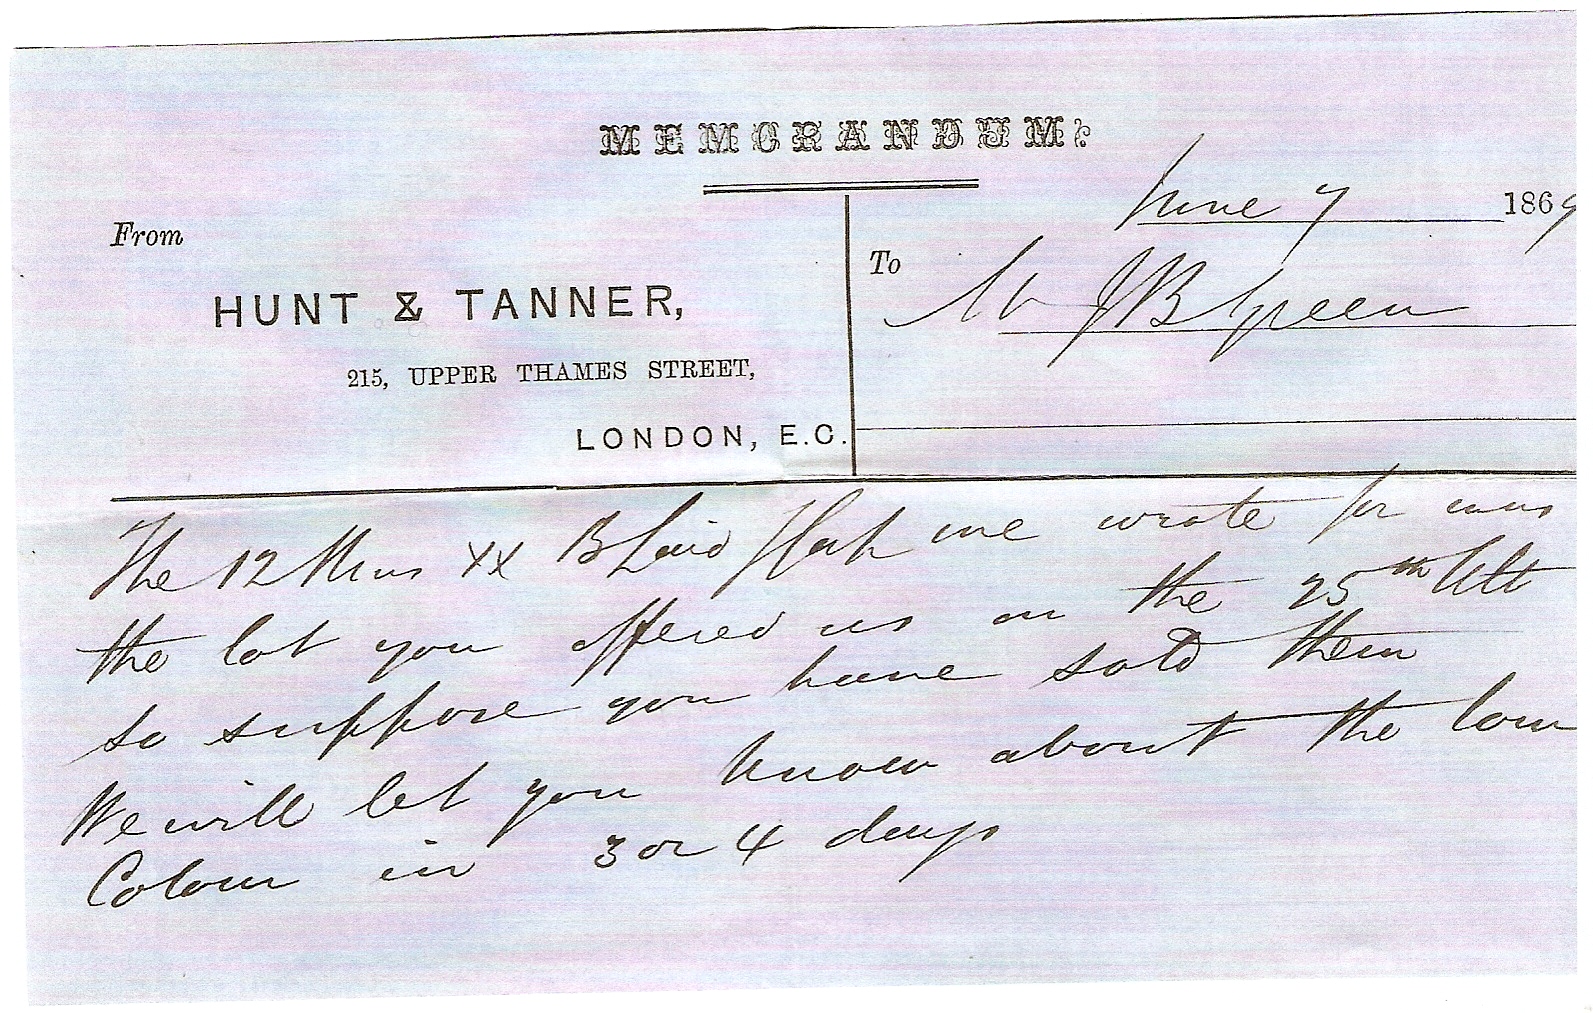 MEMORANDUM.
June 7 1869
From
To
HUNT & TANNER,
Mr J B Green
215, UPPER THAMES STREET,
LONDON, E.C.
The 12 Rms XX B Laid we wrote for was
the lot you offered us on the 25th Ult
so suppose you have sold them
We will let you know about the low
Colour in 3 or 4 days